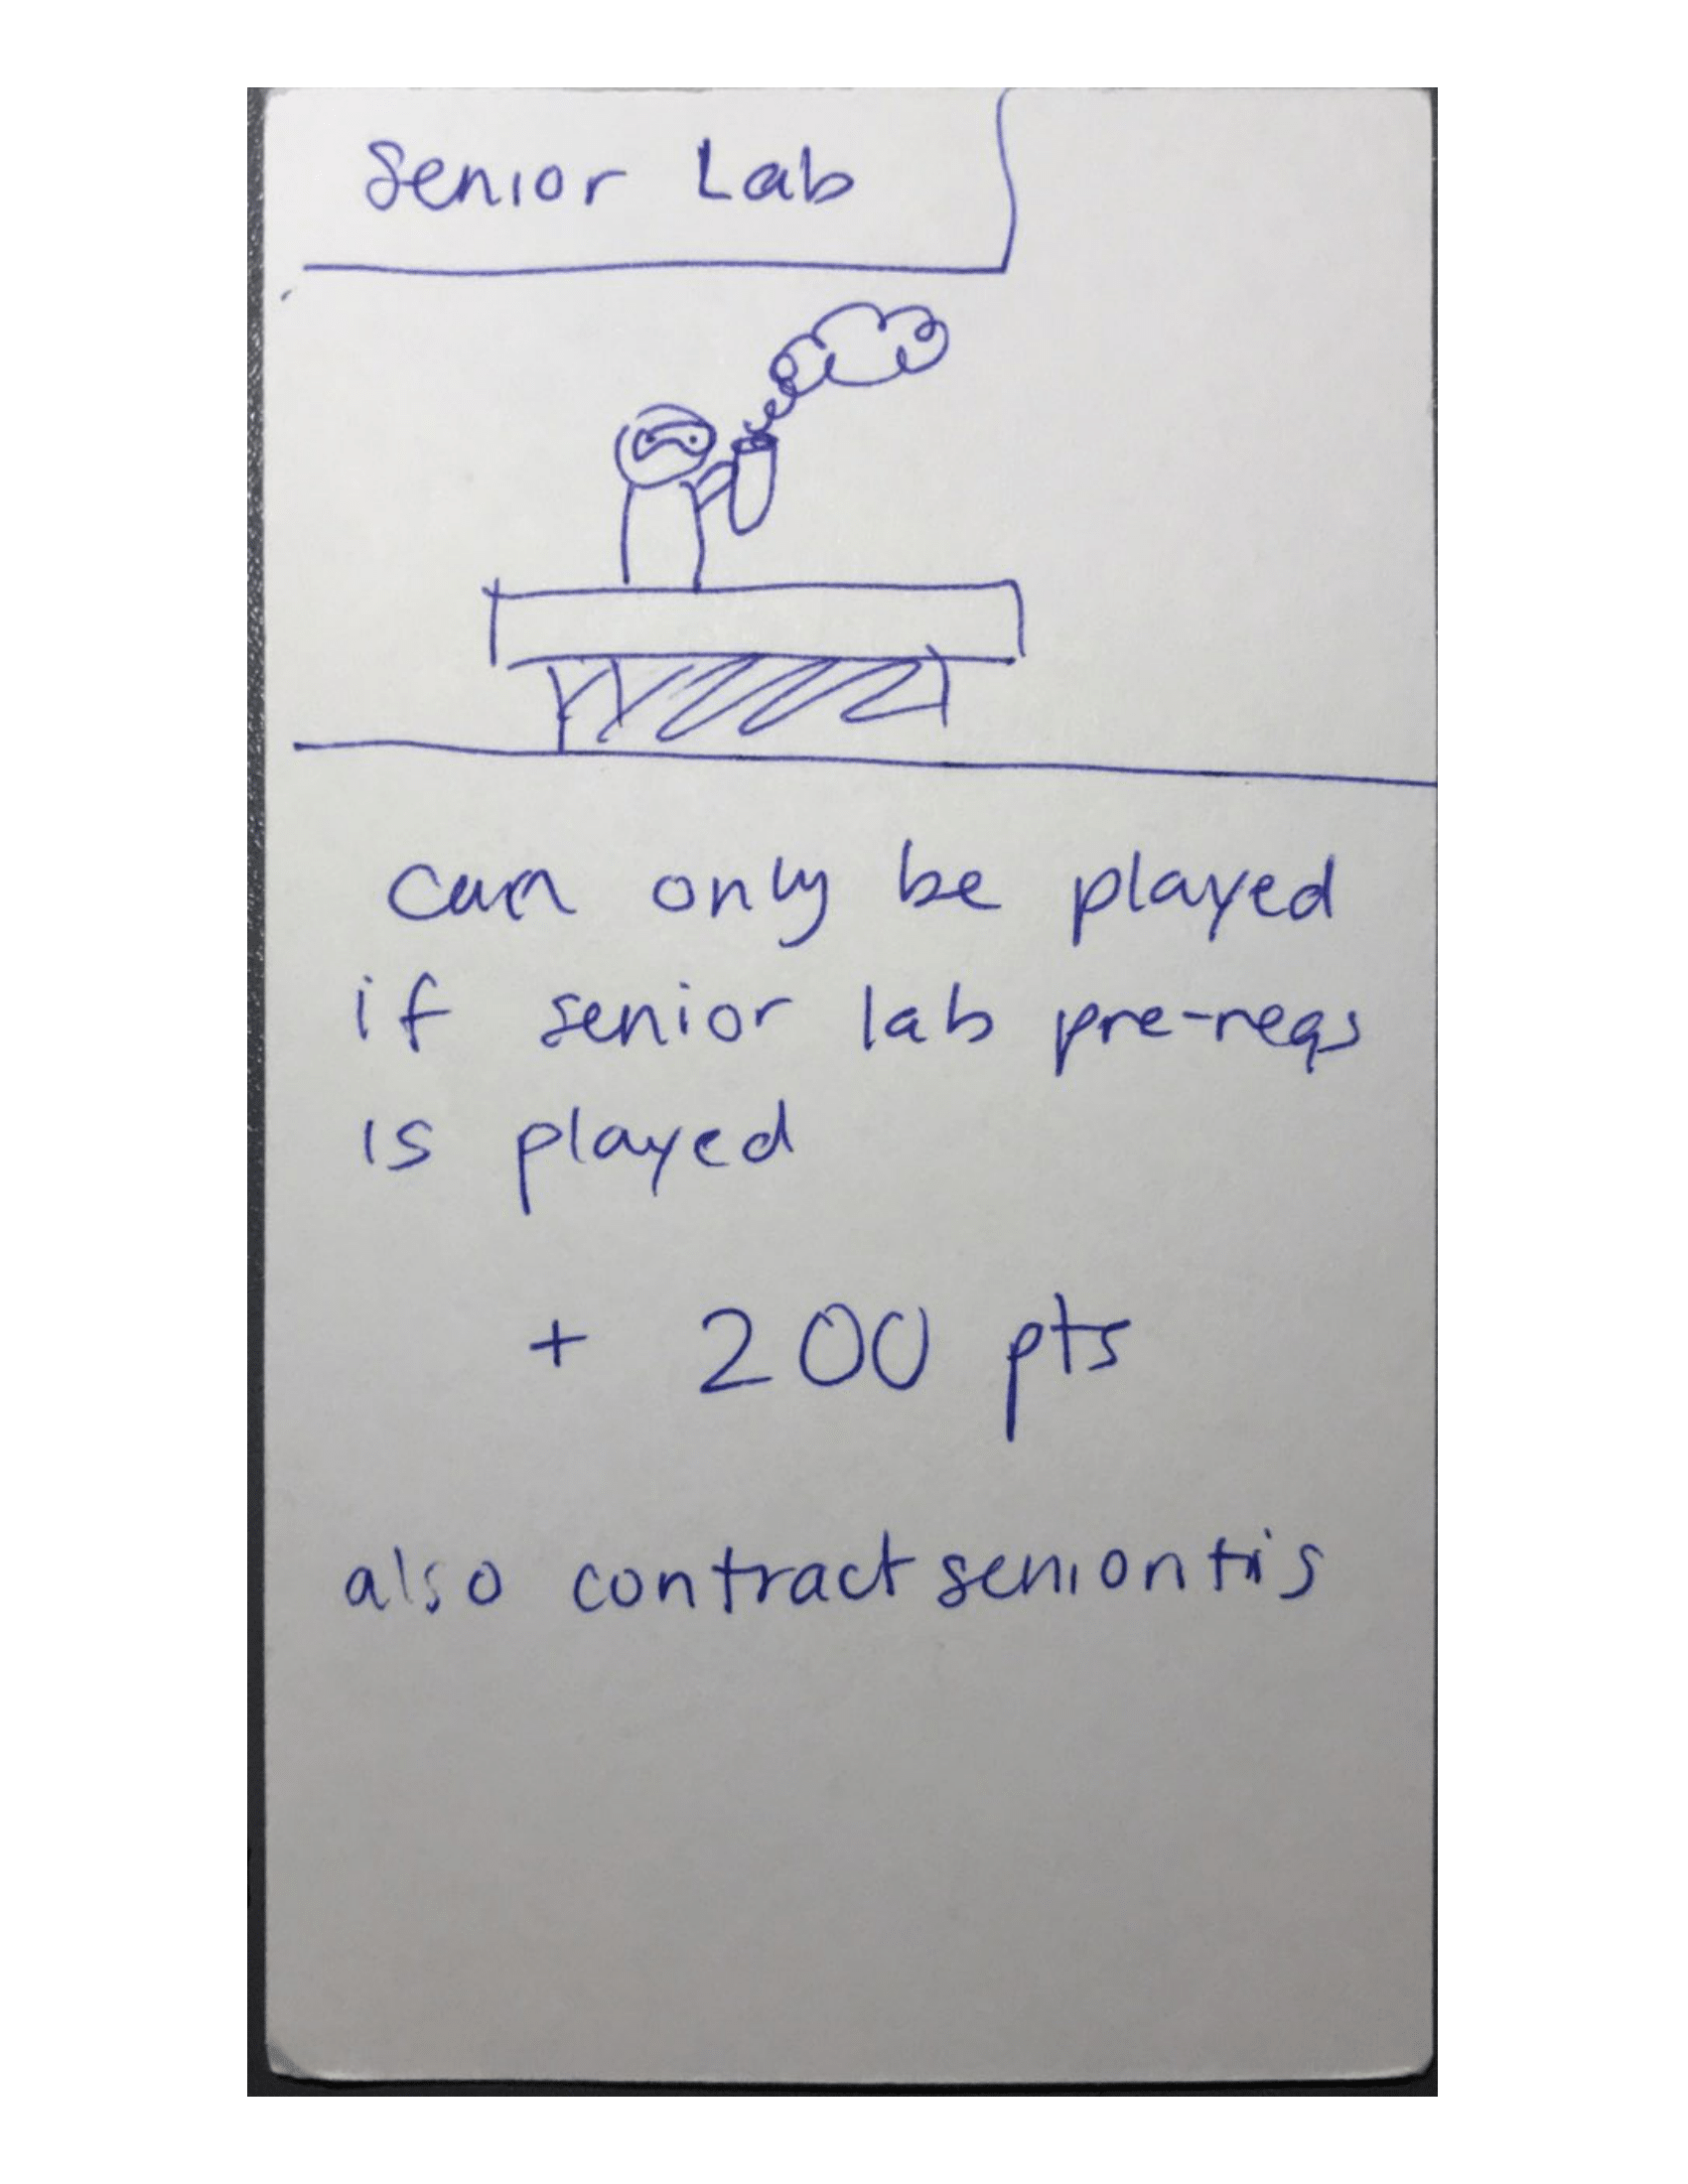 Senior Lab
can only be played
if senior lab pre-reqs
is played
+ 200 pts
also contract seniontis